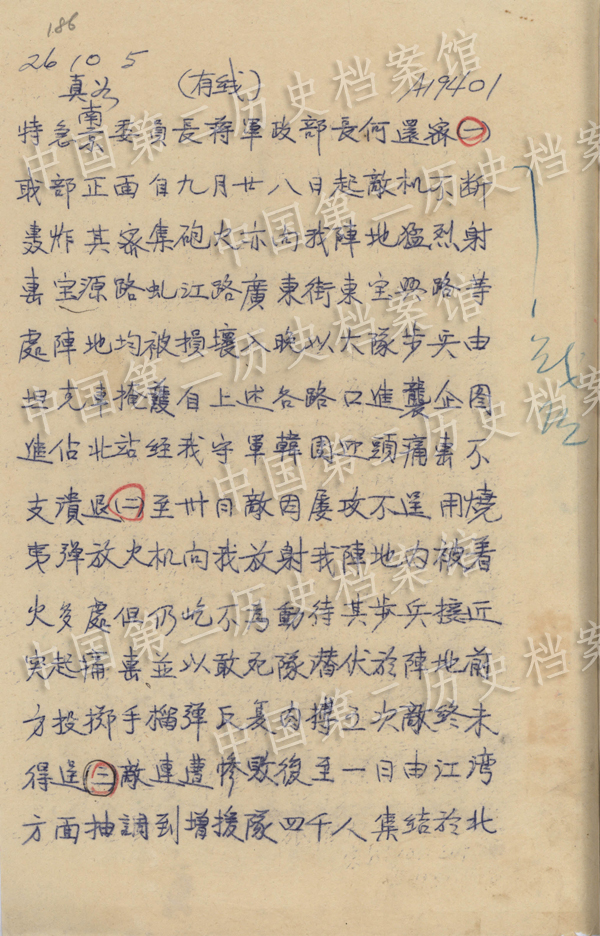 186
26 10 5
真茹 (有线) A19401
特急南京委員長蒋軍政部長何還密(一)
职部正面自九月廿八日起敵机不断
轰炸其密集砲火亦向我陣地猛烈射
击宝源路虬江路廣東街東宝興路等
處陣地均被損壞入晚以大隊步兵由
坦克車掩護自上述各路口進襲企图
進佔北站经我守軍韓团迎頭痛击不
支潰退(二)至卅日敵因屡攻不逞用燒
夷弹放火机向我放射我陣地内被着
火多處但仍屹不為動待其步兵接近
突起痛击並以敢死隊潜伏於陣地前
方投掷手榴弹反复肉搏五次敵终未
得逞(三)敵連遭惨败後至一日由江湾
方面抽調到增援隊四千人集结於北
中国第二历史档案馆